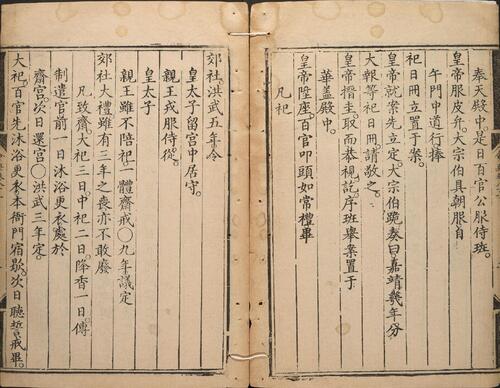 奉天殿中是日百官公服侍班。
皇帝服皮弁。大宗伯具朝服自
午門中道行捧
祀日冊立置于案。
皇帝就案先立定。大宗伯跪奏曰嘉靖幾年分
大報等祀日冊。請敬之。
皇帝搢圭。取而恭視訖。序班舉案置于
華蓋殿中。
皇帝陞座。百官叩頭如常禮畢
凡祀
郊社。洪武五年令
皇太子留宮中居守。
親王戎服侍從。
皇太子
親王雖不陪祀。一體齋戒〇九年議定
郊社大禮雖有三年之喪亦不敢廢
凡致齋。大祀三日。中祀二日。降香一日。傳
制遣官前一日沐浴更衣處於
齋宮。次日還宮〇洪武三年定。
大祀。百官先沐浴更衣本衙門宿歇。次日聽誓戒畢。